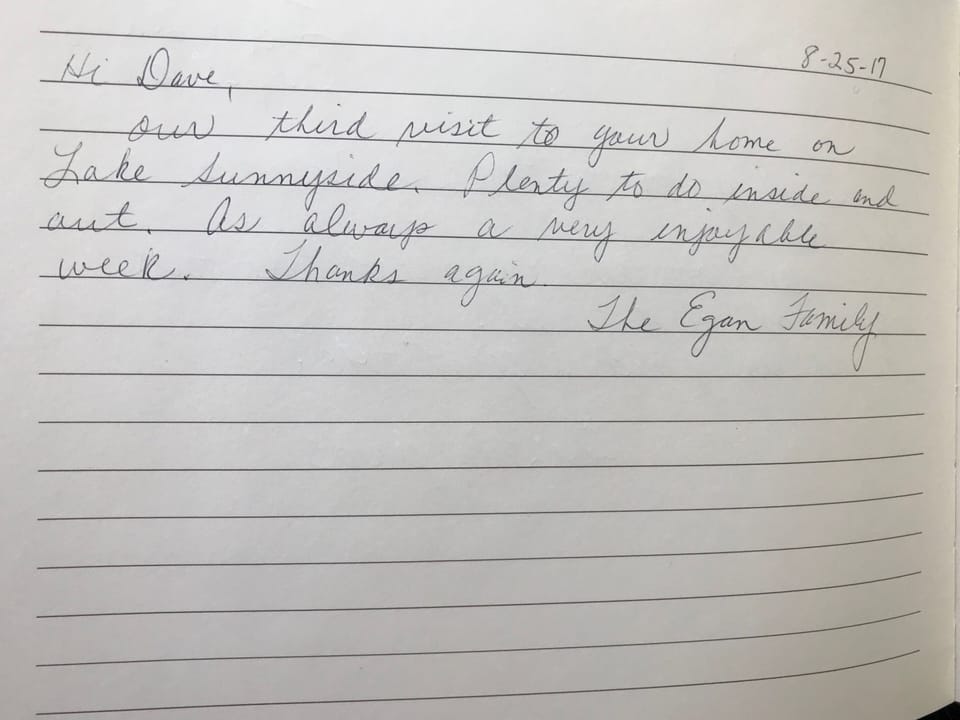 8-25-17
Hi Dave,
our third visit to your home on
Lake Sunnyside. Plenty to do inside and
out. As always a very enjoyable
week. Thanks again.
The Egan Family